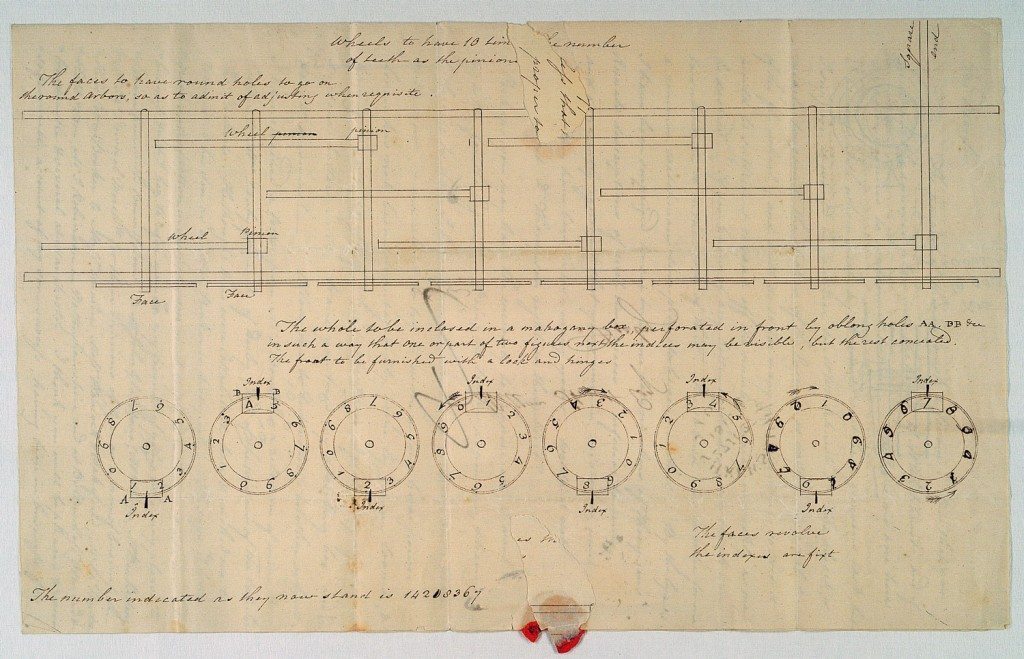 Wheels to have 10 tim he number
of teeth as the pinion
The faces to have round holes to go on
the round Arbors, so as to admit of adjusting when requisite.
Square
end
proper to
Wheel pinion pinion
Wheel Pinion
Face Face
The whole to be inclosed in a mahogany box, perforated in front by oblong holes AA, BB &c
in such a way that one or part of two figures next the indices may be visible, but the rest concealed.
The front to be furnished with a lock and hinges
Index Index Index Index
B B
A A
Index Index Index Index
es th
The faces revolve
the indexes are fixt
The number indicated as they now stand is 14208367